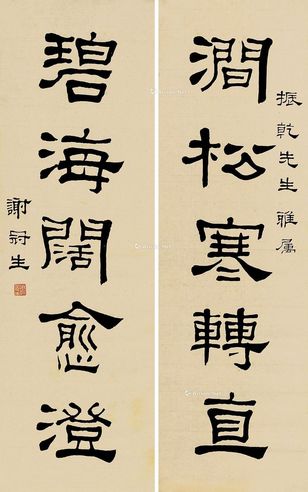 振乾先生雅屬
澗松寒轉直
碧海闊愈澄
謝冠生